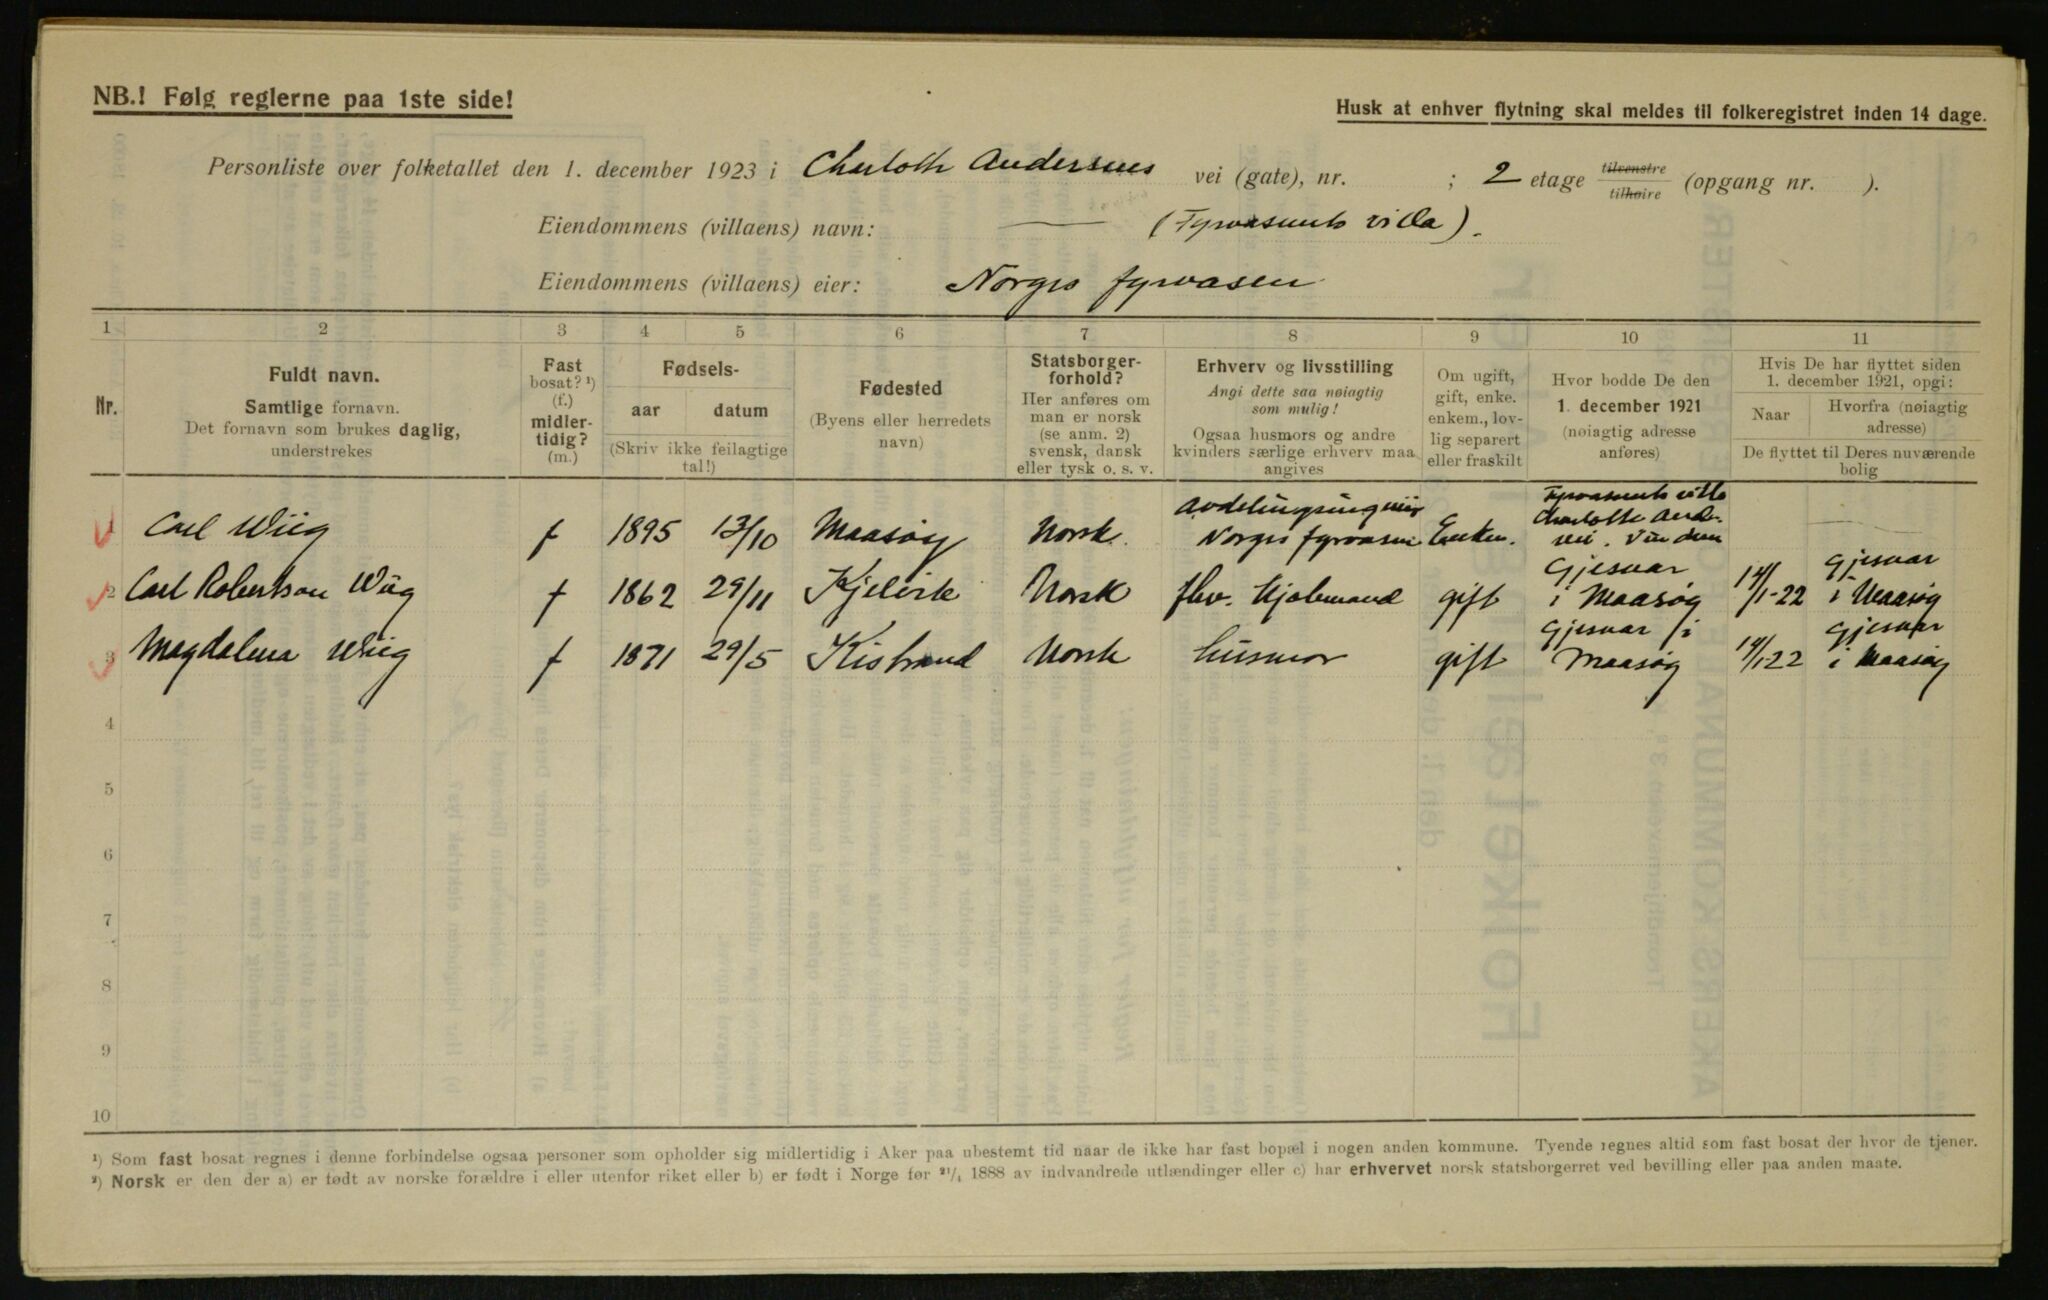 NB.! Følg reglerne paa 1ste side!
Husk at enhver flytning skal meldes til folkeregistret inden 14 dage.
Personliste over folketallet den 1. december 1923 i Charlotte Andersens vei (gate), nr. ; 2 etage tilvenstre tilhøire (opgang nr. ).
Eiendommens (villaens) navn: (Fyrvæsenets villa).
Eiendommens (villaens) eier: Norges fyrvæsen
1 2 3 4 5 6 7 8 9 10 11
Nr.
Fuldt navn.
Samtlige fornavn.
Det fornavn som brukes daglig,
understrekes
Fast
bosat? ¹)
(f.)
midler-
tidig?
(m.)
Fødsels-
aar datum
(Skriv ikke feilagtige
tal!)
Fødested
(Byens eller herredets
navn)
Statsborger-
forhold?
Her anføres om
man er norsk
(se anm. 2)
svensk, dansk
eller tysk o. s. v.
Erhverv og livsstilling
Angi dette saa nøiagtig
som mulig!
Ogsaa husmors og andre
kvinders særlige erhverv maa
angives
Om ugift,
gift, enke.
enkem., lov-
lig separert
eller fraskilt
Hvor bodde De den
1. december 1921
(nøiagtig adresse
anføres)
Hvis De har flyttet siden
1. december 1921, opgi:
Naar
Hvorfra (nøiagtig
adresse)
De flyttet til Deres nuværende
bolig
1 Carl Wiig f 1895 13/10 Maasøy Norsk. Avdelingsingeniør Norges fyrvæsen Enkem. Fyrvæsenets villa Charlotte Anders. vei. Vinderen
2 Carl Robertson Wiig f 1862 29/11 Kjelvik Norsk fhv. Kjøbmand gift Gjesvær i Maasøy 14/1-22 Gjesvær i Maasøy
3 Magdalena Wiig f 1871 29/5 Kistrand Norsk husmor gift Gjesvær i Maasøy 14/1-22 Gjesvær i Maasøy
4
5
6
7
8
9
10
¹) Som fast bosat regnes i denne forbindelse ogsaa personer som opholder sig midlertidig i Aker paa ubestemt tid naar de ikke har fast bopæl i nogen anden kommune. Tyende regnes altid som fast bosat der hvor de tjener.
²) Norsk er den der a) er født av norske forældre i eller utenfor riket eller b) er født i Norge før ²¹/₁ 1888 av indvandrede utlændinger eller c) har erhvervet norsk statsborgerret ved bevilling eller paa anden maate.